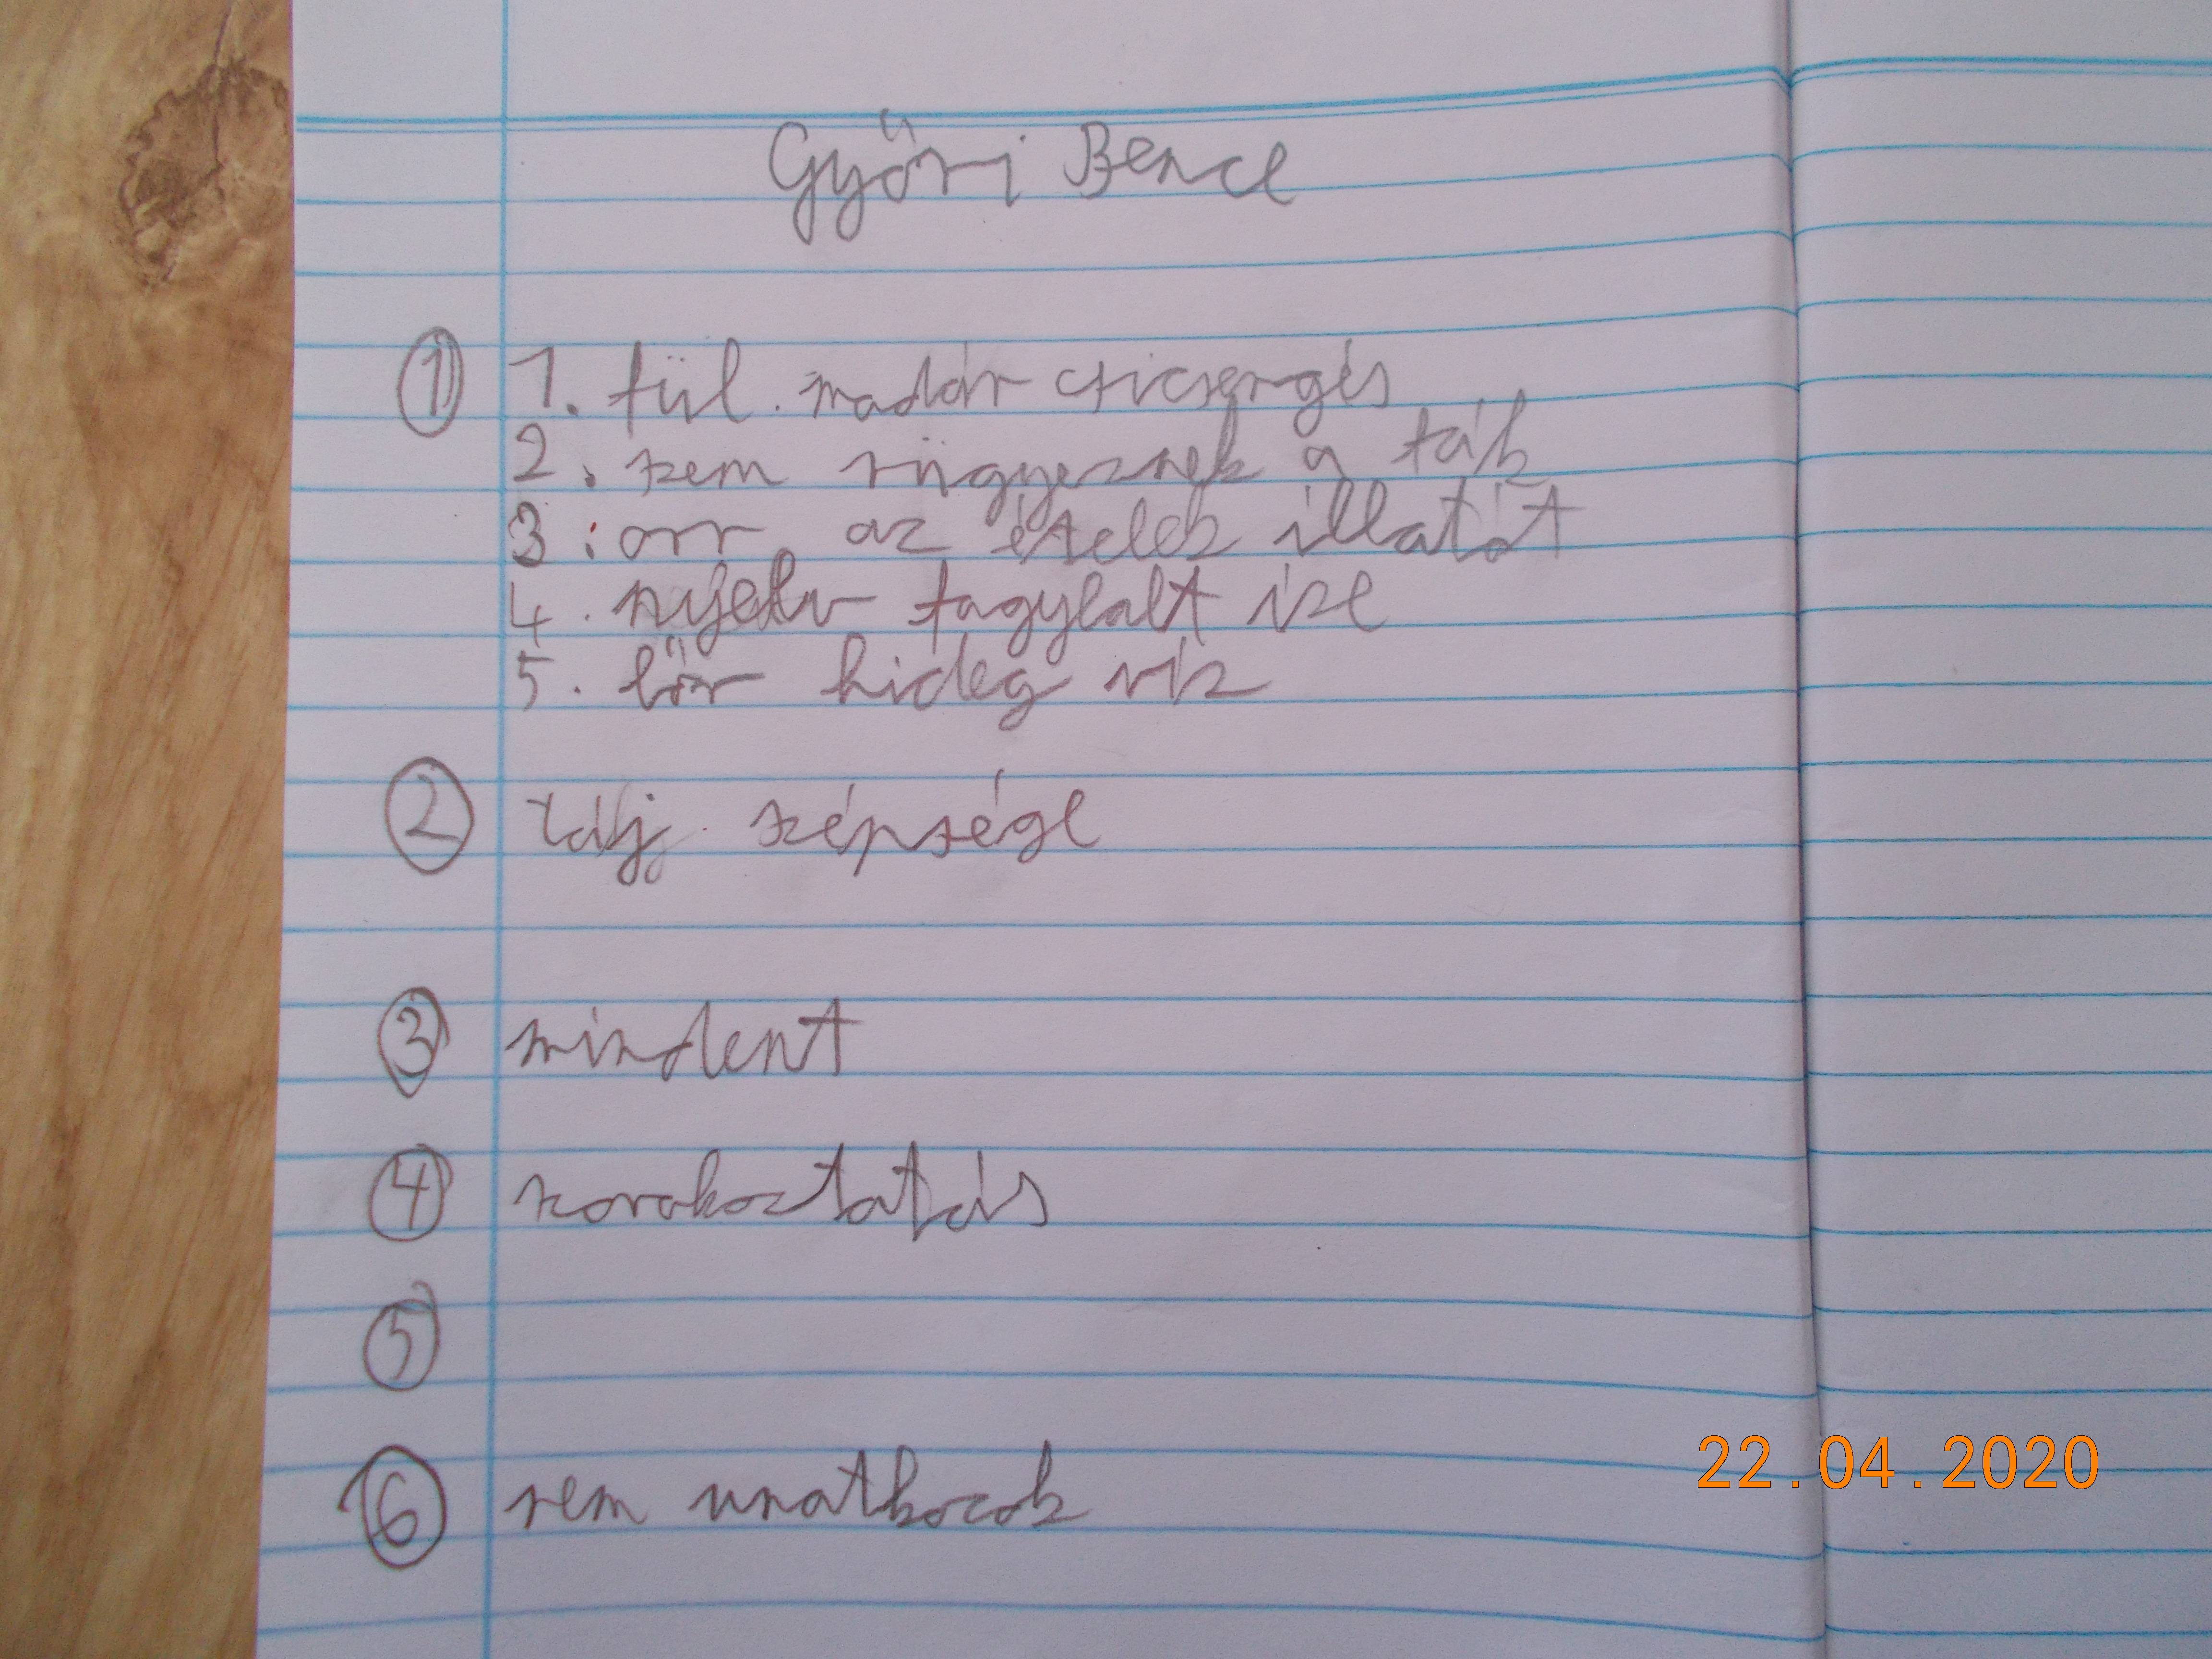 Győri Bence
① 1. fül. madár csicsergés
2. szem rügyeznek a fák
3. orr az ételek illatát
4. nyelv fagylalt íze
5. bőr hideg víz
② táj szépsége
③ mindent
④ szorakoztatás
⑤
⑥ nem unatkozok
22.04.2020